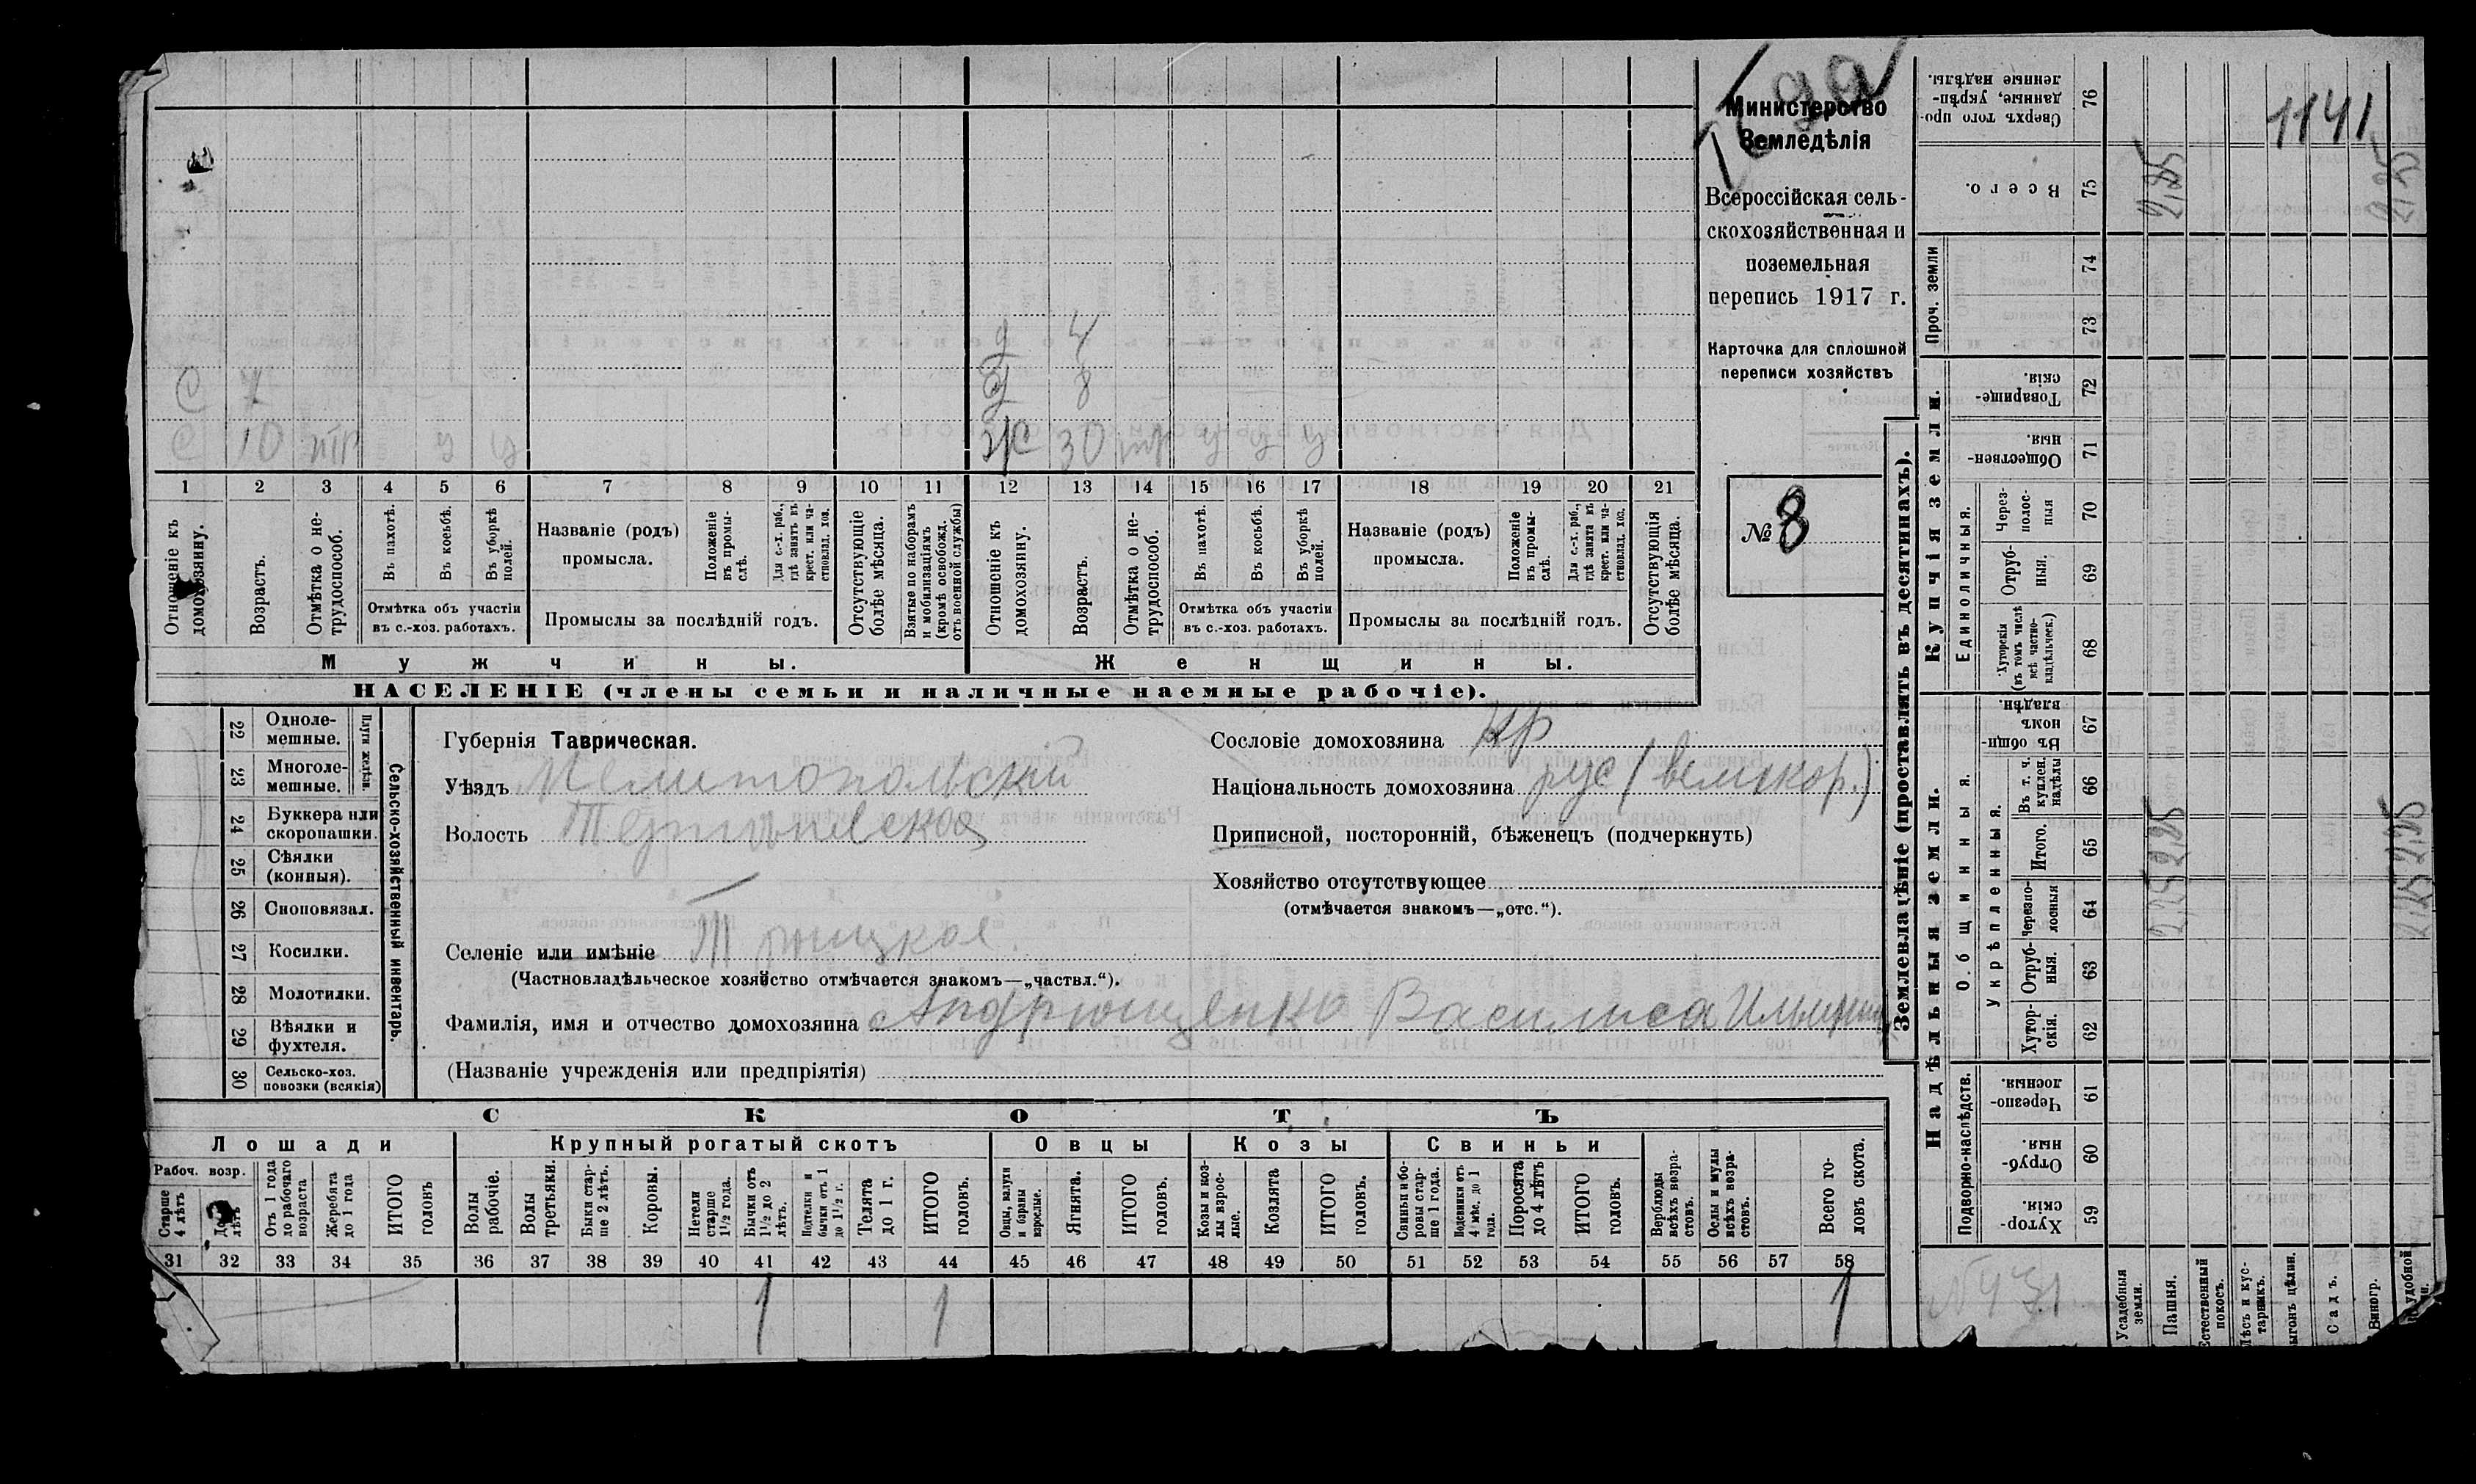 Министерство
Земледѣлія
Всероссійская сель-
скохозяйственная и
поземельная
перепись 1917 г.
Карточка для сплошной
переписи хозяйствъ
№ 8
д 4
С 7 д 8
С 10 тр у у ж 30 тр у у у
1 2 3 4 5 6 7 8 9 10 11 12 13 14 15 16 17 18 19 20 21
Отношеніе къ домохозяину.
Возрастъ.
Отмѣтка о не-трудоспособ.
Въ пахотѣ.
Въ косьбѣ.
Въ уборкѣ полей.
Отмѣтка объ участіи
въ с.-хоз. работахъ.
Названіе (родъ)
промысла.
Положеніе въ промы-слѣ.
Для с.-х. раб., гдѣ занятъ въ крест. или ча-стновлад. хоз.
Промыслы за послѣдній годъ.
Отсутствующіе болѣе мѣсяца.
Взятые по наборамъ и мобилизаціямъ (кромѣ освобожд. отъ военной службы)
Отношеніе къ домохозяину.
Возрастъ.
Отмѣтка о не-трудоспособ.
Въ пахотѣ.
Въ косьбѣ.
Въ уборкѣ полей.
Отмѣтка объ участіи
въ с.-хоз. работахъ.
Названіе (родъ)
промысла.
Положеніе въ промы-слѣ.
Для с.-х. раб., гдѣ занята въ крест. или ча-стновлад. хоз.
Промыслы за послѣдній годъ.
Отсутствующія болѣе мѣсяца.
Мужчины. Женщины.
НАСЕЛЕНІЕ (члены семьи и наличные наемные рабочіе).
22 Одноле-мешные.
23 Многоле-мешные.
Плуги желѣзн.
24 Буккера или скоропашки.
25 Сѣялки (конныя).
26 Сноповязал.
27 Косилки.
28 Молотилки.
29 Вѣялки и фухтеля.
30 Сельско-хоз. повозки (всякія)
Сельско-хозяйственный инвентарь.
Губернія Таврическая.
Уѣздъ Мелитопольскій
Волость
Селеніе или имѣніе Троицкое.
(Частновладѣльческое хозяйство отмѣчается знакомъ—„частвл.“).
Фамилія, имя и отчество домохозяина Андрющенко Василиса
(Названіе учрежденія или предпріятія)
Сословіе домохозяина кр
Національность домохозяина рус (великор.)
Приписной, посторонній, бѣженецъ (подчеркнуть)
Хозяйство отсутствующее
(отмѣчается знакомъ—„отс.“).
СКОТЪ
Лошади Крупный рогатый скотъ Овцы Козы Свиньи
Рабоч. возр.
Старше 4 лѣтъ
лѣтъ
Отъ 1 года до рабочаго возраста
Жеребята до 1 года
ИТОГО головъ
Волы рабочіе.
Волы третьяки.
Быки стар-ше 2 лѣтъ.
Коровы.
Нетели старше 1½ года.
Бычки отъ 1½ до 2 лѣтъ.
Подтелки и бычки отъ 1 до 1½ г.
Телята до 1 г.
ИТОГО головъ.
Овцы, валухи и бараны взрослые.
Ягнята.
ИТОГО головъ.
Козы и коз-лы взрос-лые.
Козлята
ИТОГО головъ.
Свиньи и бо-ровы стар-ше 1 года.
Подсвинки отъ 4 мѣс. до 1 года.
Поросята до 4 лѣтъ
ИТОГО головъ.
Верблюды всѣхъ возра-стовъ.
Ослы и мулы всѣхъ возра-стовъ.
Всего го-ловъ скота.
31 32 33 34 35 36 37 38 39 40 41 42 43 44 45 46 47 48 49 50 51 52 53 54 55 56 57 58
1 1 1
Землевладѣніе (проставлять въ десятинахъ).
Сверхъ того про-данные, укрѣп-ленные надѣлы. 76
1141
Всего. 75
2,25 2,25
Проч. земли
74
73
Купчія земли.
Товарище-скія. 72
Обществен-ныя. 71
Единоличныя.
Через-полос-ныя 70
Отруб-ныя. 69
Хуторскія (въ томъ числѣ всѣ частно-владѣльческ.) 68
Надѣльныя земли.
Общинныя.
Въ общин-номъ владѣн. 67
Укрѣпленныя.
Въ т. ч. куплен. надѣлы 66
Итого. 65
2,25 2,25
Черезпо-лосныя 64
2,25 2,25
Отруб-ныя. 63
Хутор-скія. 62
Подворно-наслѣдств.
Черезпо-лосныя. 61
Отруб-ныя. 60
Хутор-скія. 59
Усадебныя земли.
Пашня.
Естественный покосъ.
Лѣсъ и кус-тарникъ.
Выгонъ цѣлин.
Садъ.
Виногр.
удобной